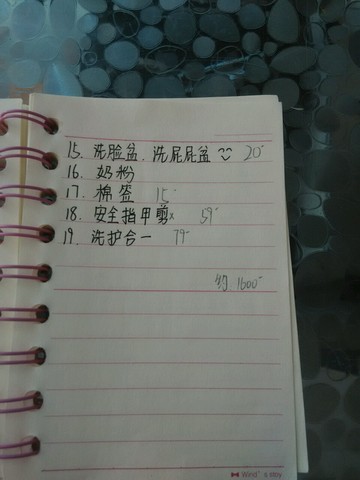 15. 洗脸盆. 洗屁屁盆 20
16. 奶粉
17. 棉签 15
18. 安全指甲剪 59
19. 洗护合一 79
约 1600
Wind